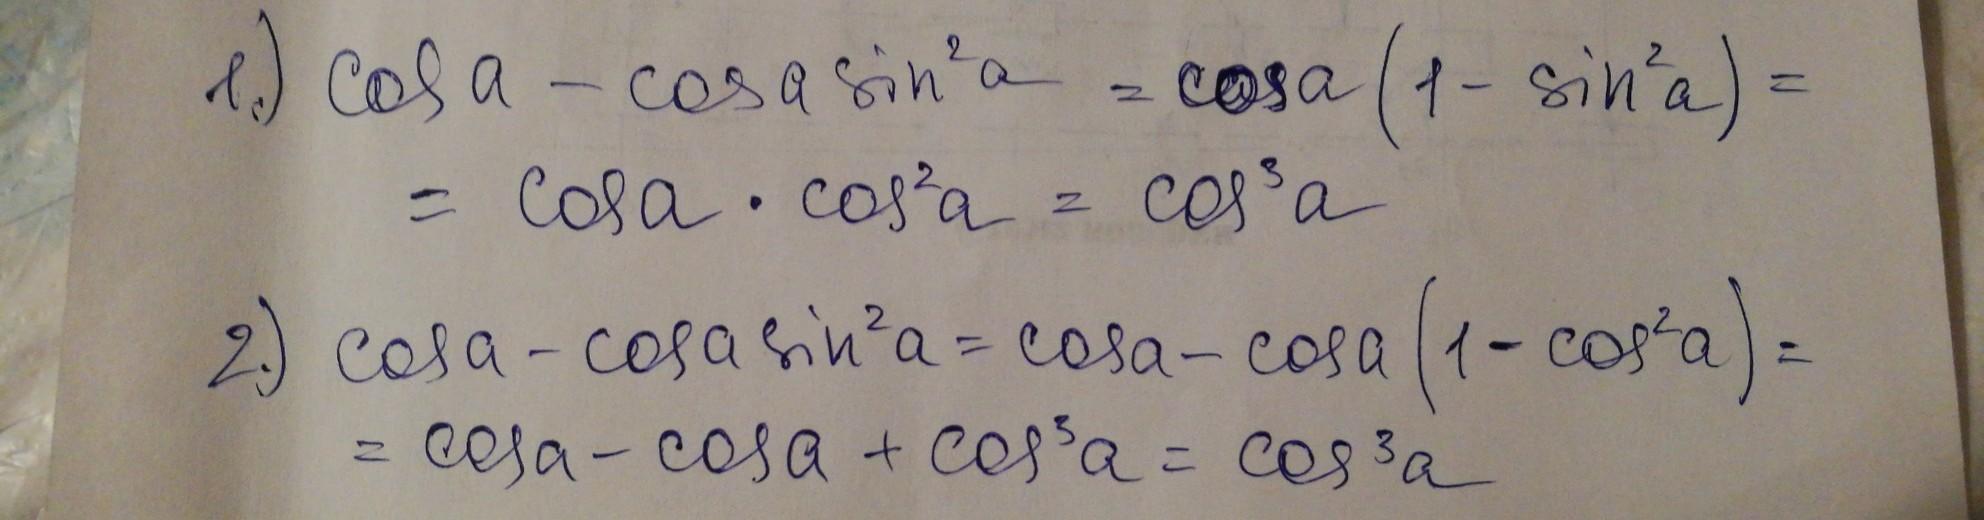 1.) cos a - cos a sin²a = cos a (1 - sin²a) =
= cos a · cos²a = cos³a
2.) cos a - cos a sin²a = cos a - cos a (1 - cos²a) =
= cos a - cos a + cos³a = cos³a